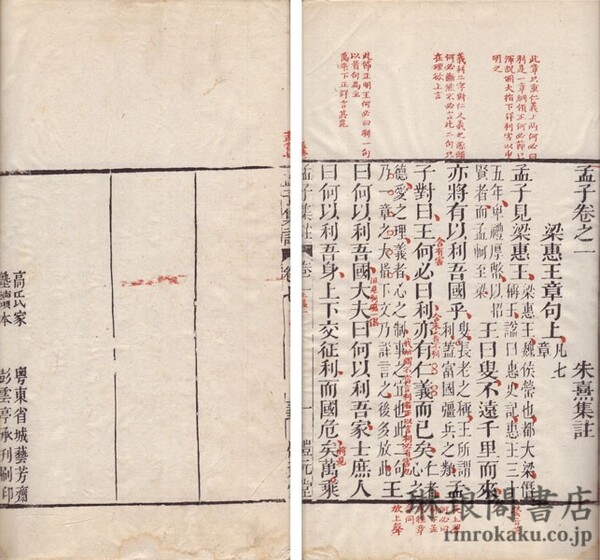 孟子卷之一
朱熹集註
梁惠王章句上
凡七章
孟子見梁惠王
梁惠王魏侯罃也都大梁僭
稱王謚曰惠史記惠王三十
五年卑禮厚幣以招
賢者而孟軻至梁
王曰叟不遠千里而來
亦將有以利吾國乎
叟長老之稱王所謂
利蓋富國彊兵之類
孟
子對曰王何必曰利亦有仁義而已矣
仁者
心之
德愛之理義者心之制事之宜也此二句
乃一章之大指下文乃詳言之後多放此
王
曰何以利吾國大夫曰何以利吾家士庶人
曰何以利吾身上下交征利而國危矣萬乘
此章只重仁義上兩何必曰
明之
何必
在理欲上言
此節正明王何必曰利一句
以首句為主
萬乘下正詳言其危
放上聲
孟子集註
卷一
一
高氏家
塾讀本
粵東省城藝芳齋
彭雲亭承刊刷印
琳琅閣書店
rinrokaku.co.jp